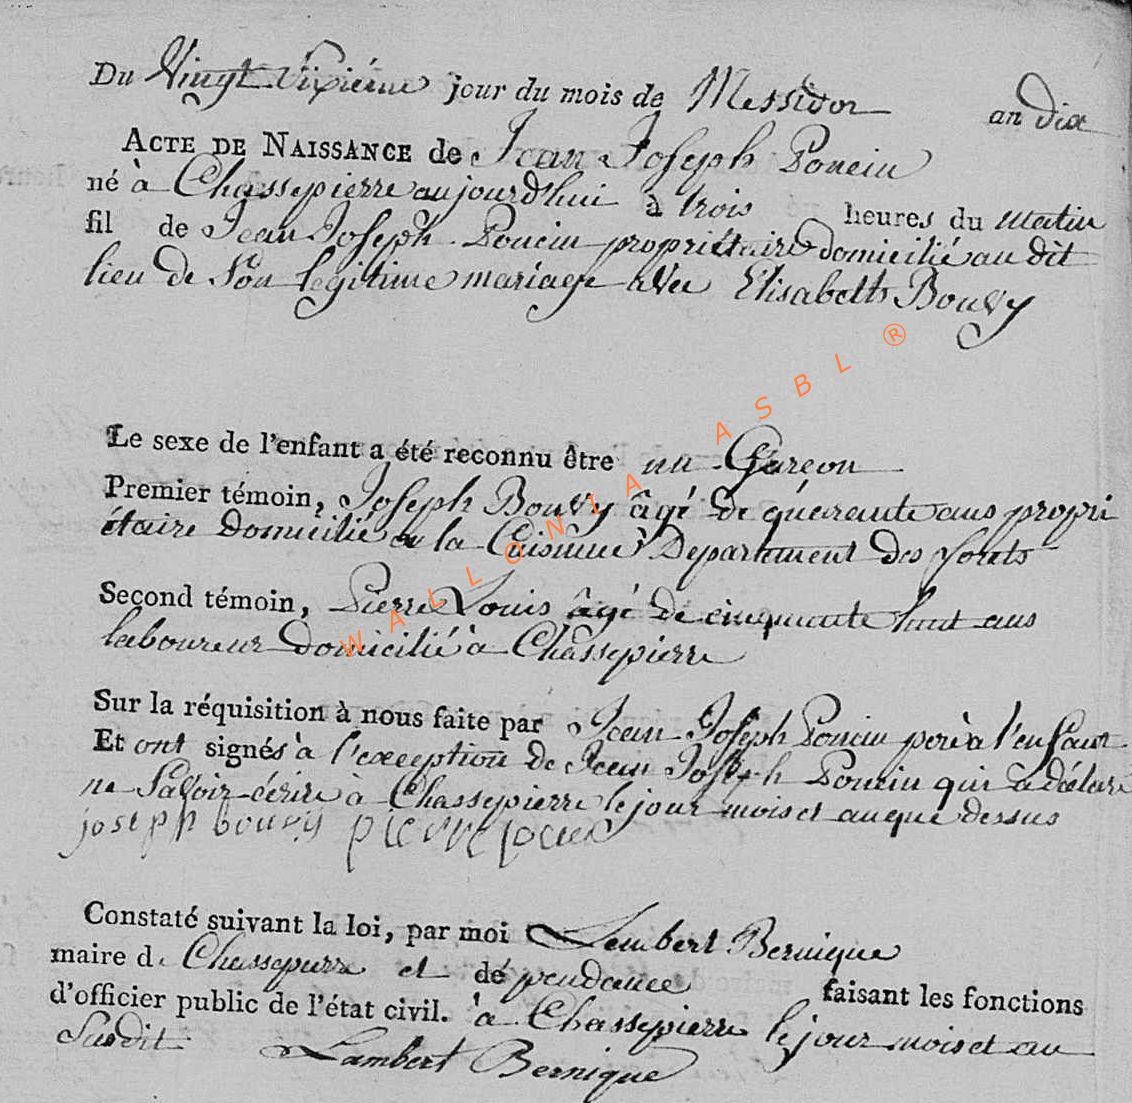 Du Vingt Sixiéme jour du mois de Messidor an dix
ACTE DE NAISSANCE de Jean Joseph Poncin
né à Chassepierre aujourd'hui à trois heures du matin
fil de Jean Joseph Poncin propriétaire domicilié au dit
lieu de Son legitime mariage avec Elisabeth Bouvy
Le sexe de l'enfant a été reconnu être un Garçon
Premier témoin, Joseph Bouvy âgé de quarante ans propri
étaire domicilié a la Cuisinne Departement des forets
Second témoin, Pierre Louis âgé de cinquante huit ans
laboureur domicilié à Chassepierre
Sur la réquisition à nous faite par Jean Joseph Poncin pere à l'enfant
Et ont signés à l'exception de Jean Joseph Poncin qui a déclaré
ne Savoir écrire à Chassepierre le jour mois et an que dessus
joseph bouvy pierre louis
Constaté suivant la loi, par moi Lembert Bernique
maire de Chassepierre et dépendance faisant les fonctions
d'officier public de l'état civil. à Chassepierre le jour mois et an
Susdit Lambert Bernique
WALLONIA ASBL ®